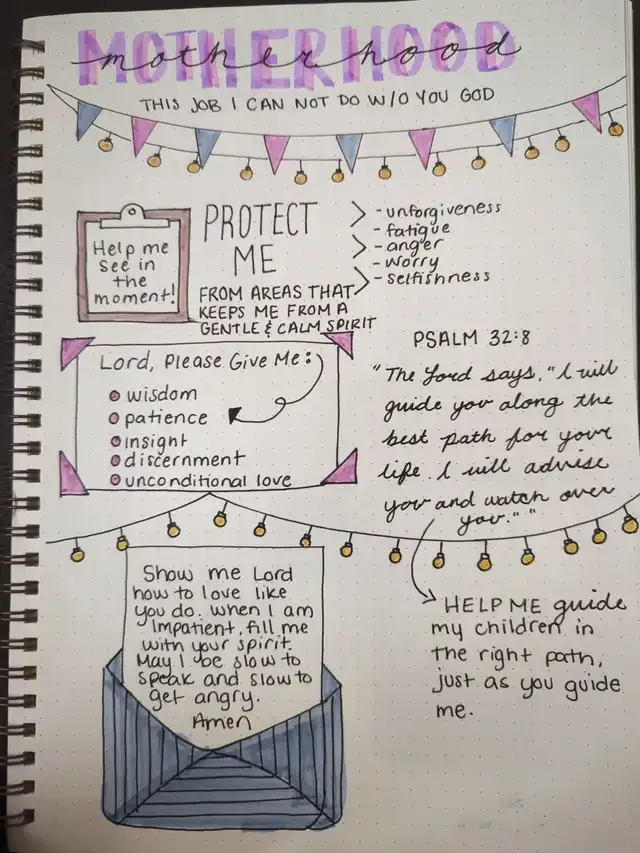 MOTHERHOOD
motherhood
THIS JOB I CAN NOT DO W/O YOU GOD
Help me
see in
the
moment!
PROTECT
ME
FROM AREAS THAT
KEEPS ME FROM A
GENTLE & CALM SPIRIT
- unforgiveness
- fatigue
- anger
- worry
- selfishness
Lord, Please Give Me:
wisdom
patience
insight
discernment
unconditional love
PSALM 32:8
"The Lord says, "I will
guide you along the
best path for your
life. I will advise
you and watch over
you." "
HELP ME guide
my children in
the right path,
just as you guide
me.
Show me Lord
how to love like
you do. When I am
Impatient, fill me
with your spirit.
May I be slow to
speak and slow to
get angry.
Amen